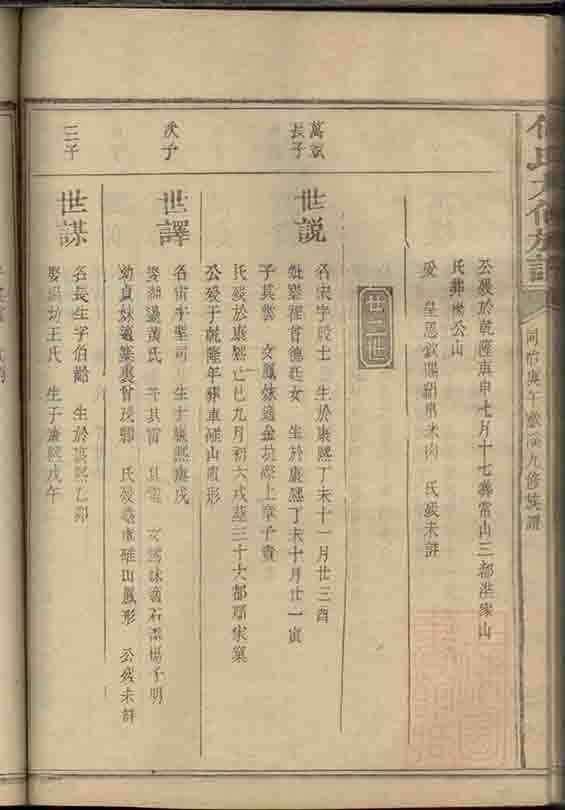 氏九修族譜
同治庚午歲濬九修族譜
公歿於乾隆庚申七月十七葬當山三都洪家山
氏葬梅公山
受 皇恩欽賜絹帛米肉 氏歿未詳
廿二世
萬斌
長子
世說
名宋字殿士 生於康熙丁未十一月廿三酉
娶 裡首德廷女 生於康熙丁未十月廿一寅
子其雲 女鳳妹適金坑際上章子貴
氏歿於康熙己巳九月初六戌葬三十六都項家
公歿于乾隆年葬車碓山 形
次子
世譯
名宙字聖司 生于康熙庚戌
娶湖邊黃氏 子其雷 其電 女 妹適石 楊子明
幼貞妹適 裏曾茂卿 氏歿葬車碓山鳳形 公歿未詳
三子
世謀
名長生字伯齡 生於康熙乙卯
娶 坊王氏 生于康熙戊午